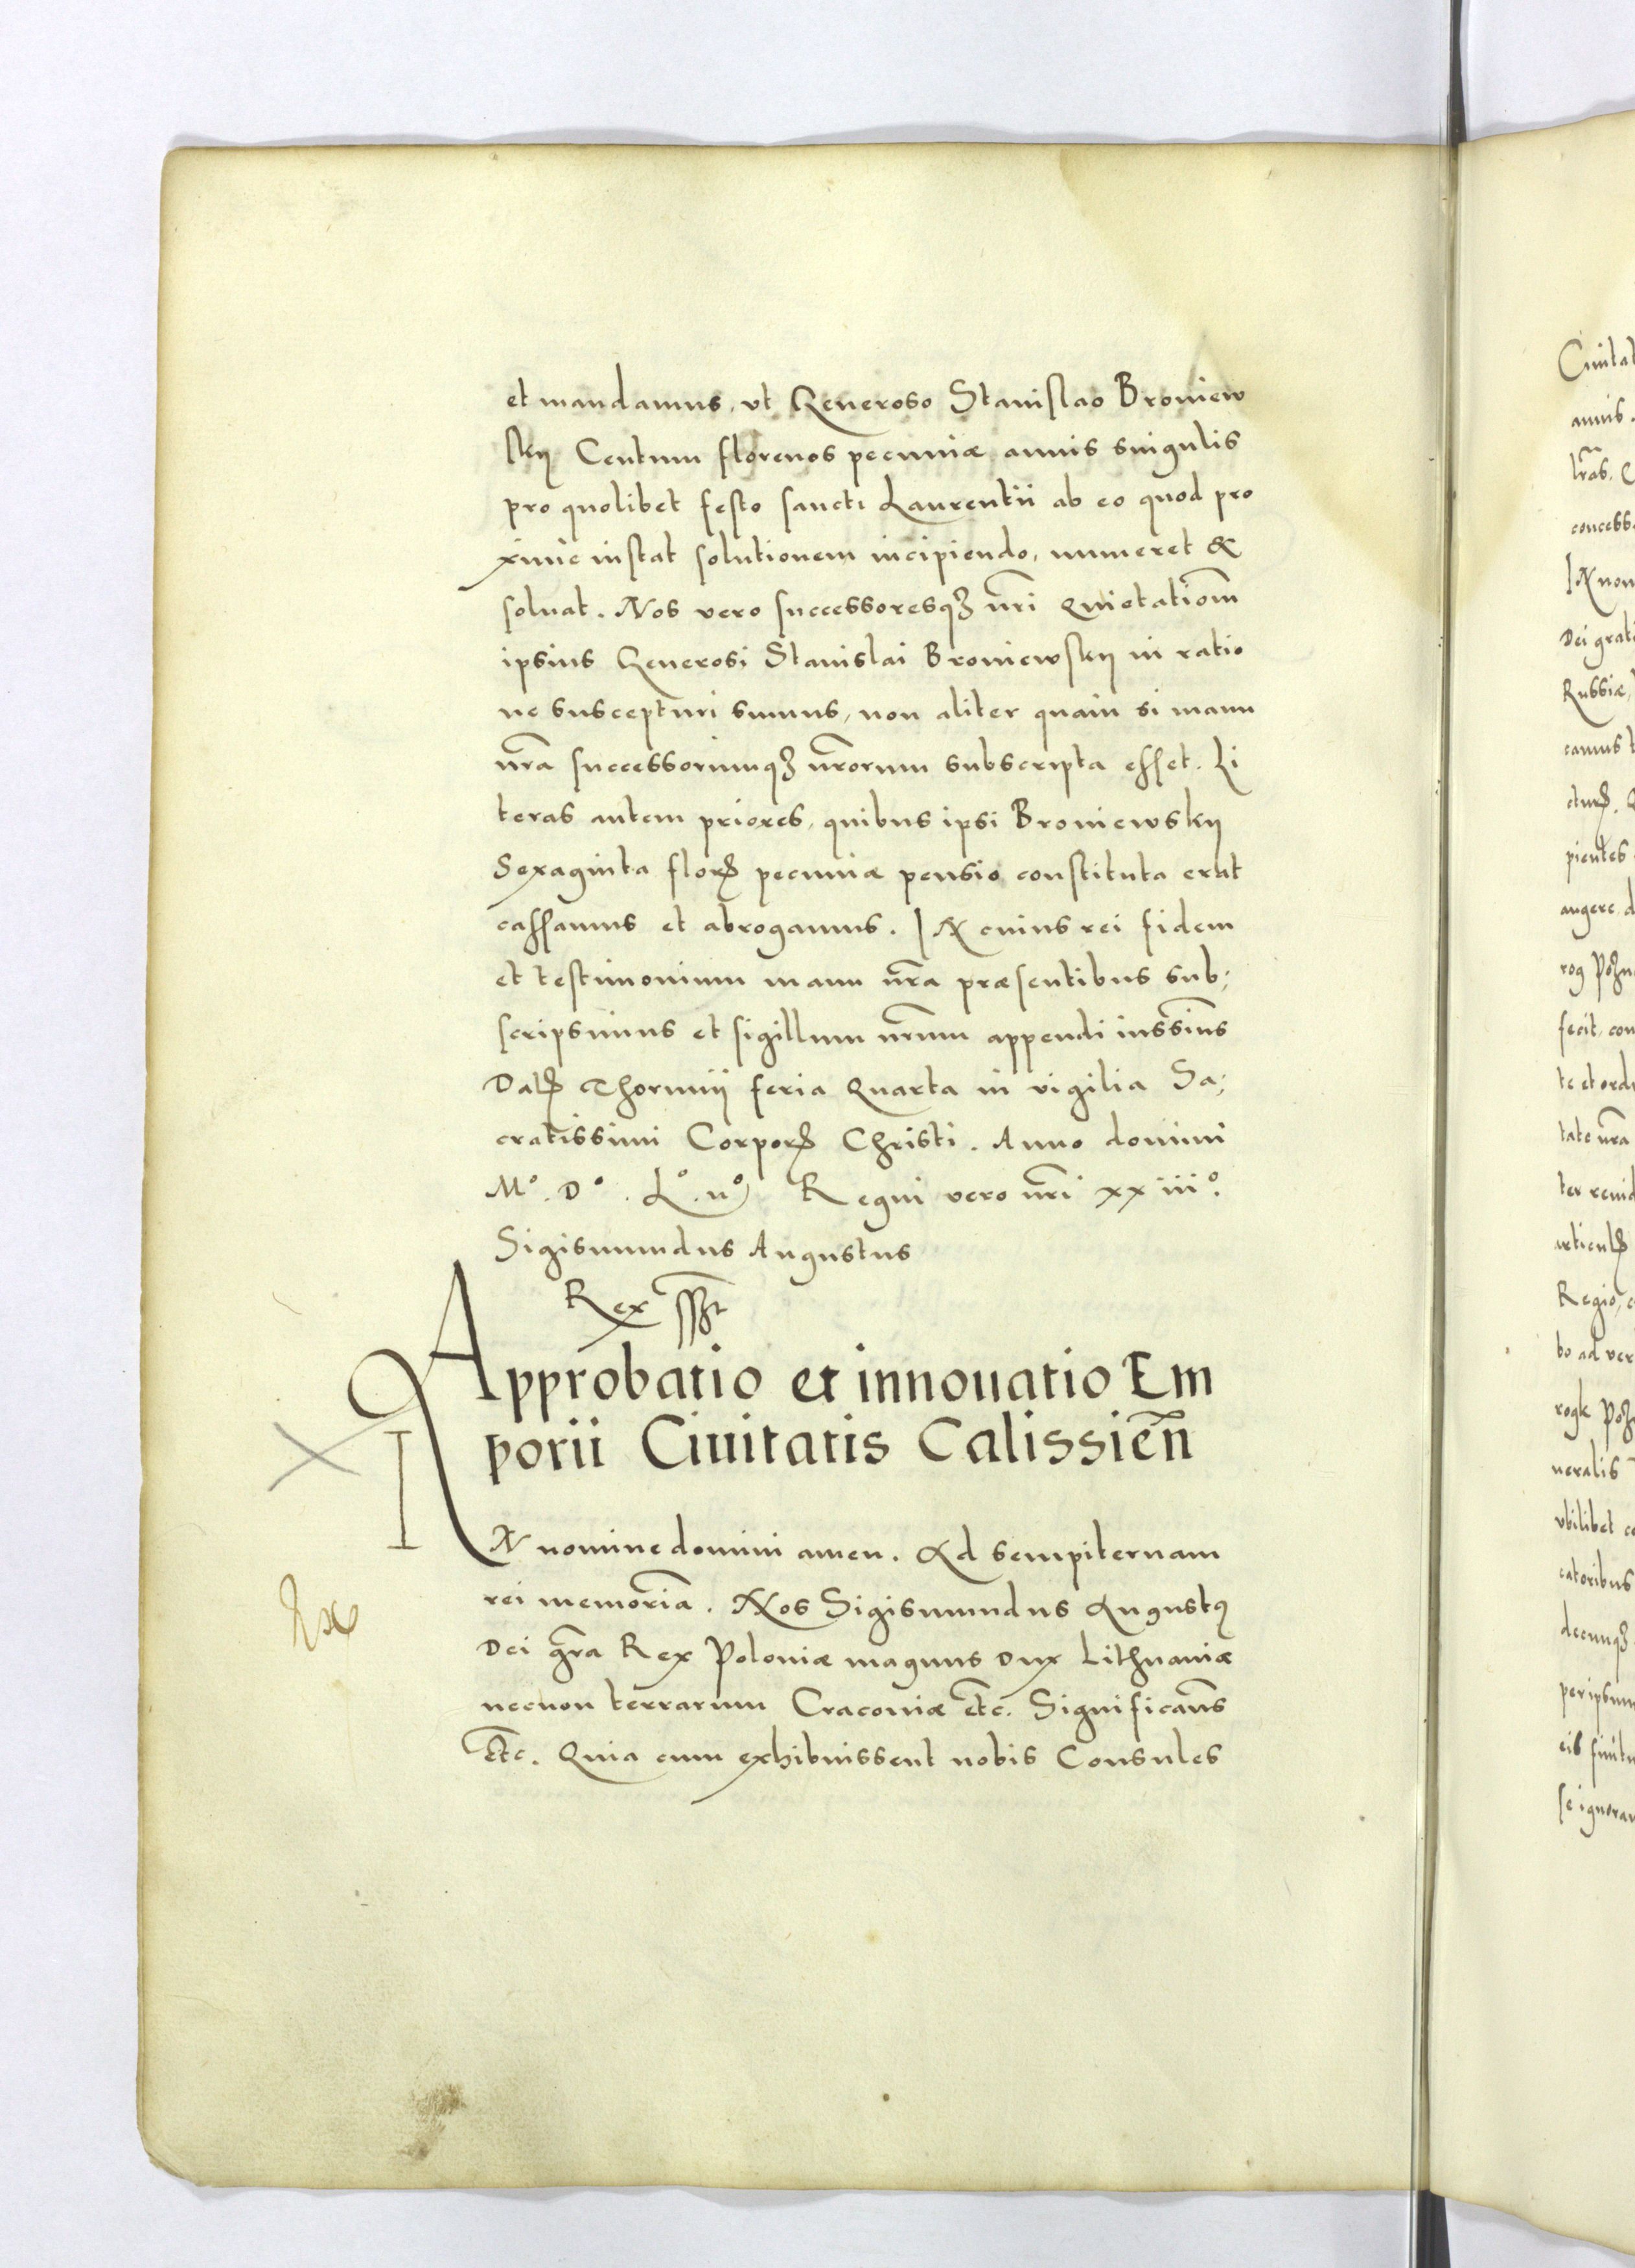 et mandamus, vt Generoso Stanislao Broniew
skij Centum florenos pecuniæ annis singulis
pro quolibet festo sancti Laurentii ab eo quod pro
xime instat solutionem incipiendo, numeret &
soluat. Nos vero successoresqȝ nr̃i Quietatiom̃
ipsius Generosi Stanislai Broniewskij in ratio
ne suscepturi sumus, non aliter quam si manu
nr̃a successorumqȝ nr̃orum subscripta esset. Li
teras autem priores, quibus ipsi Broniewskij
Sexaginta florꝭ pecuniæ pensio constituta erat
cassamus et abrogamus. IN cuius rei fidem
et testimonium manu nr̃a præsentibus sub;
scripsimus et sigillum nr̃um appendi iussim̃s
Datꝭ Thorunij feria Quarta in vigilia Sa;
cratissimi Corporꝭ Christi. Anno domini
Mº. Dº. Lº. IIº Regni vero nr̃i xxiiiº.
Sigismundus Augustus
Rex sst
Approbatio et innouatio Em
porii Ciuitatis Calissien̄
IN nomine domini amen. Ad sempiternam
rei memoriã. Nos Sigismundus Augustꝰ
Dei gr̃a Rex Poloniæ magnus Dux Lithuaniæ
necnon terrarum Cracouiæ etc̃. Significam̃s
etc̃. Quia cum exhibuissent nobis Consules
Ciuitat
annis.
lr̃as.
concess
IN non
Dei grati
Russiæ,
camus
pientes
augere
fecit, con
te et ord
tate nr̃a
Regio,
bo ad ver
neralis
vbilibet
catoribus
per ipsum
se ignoran